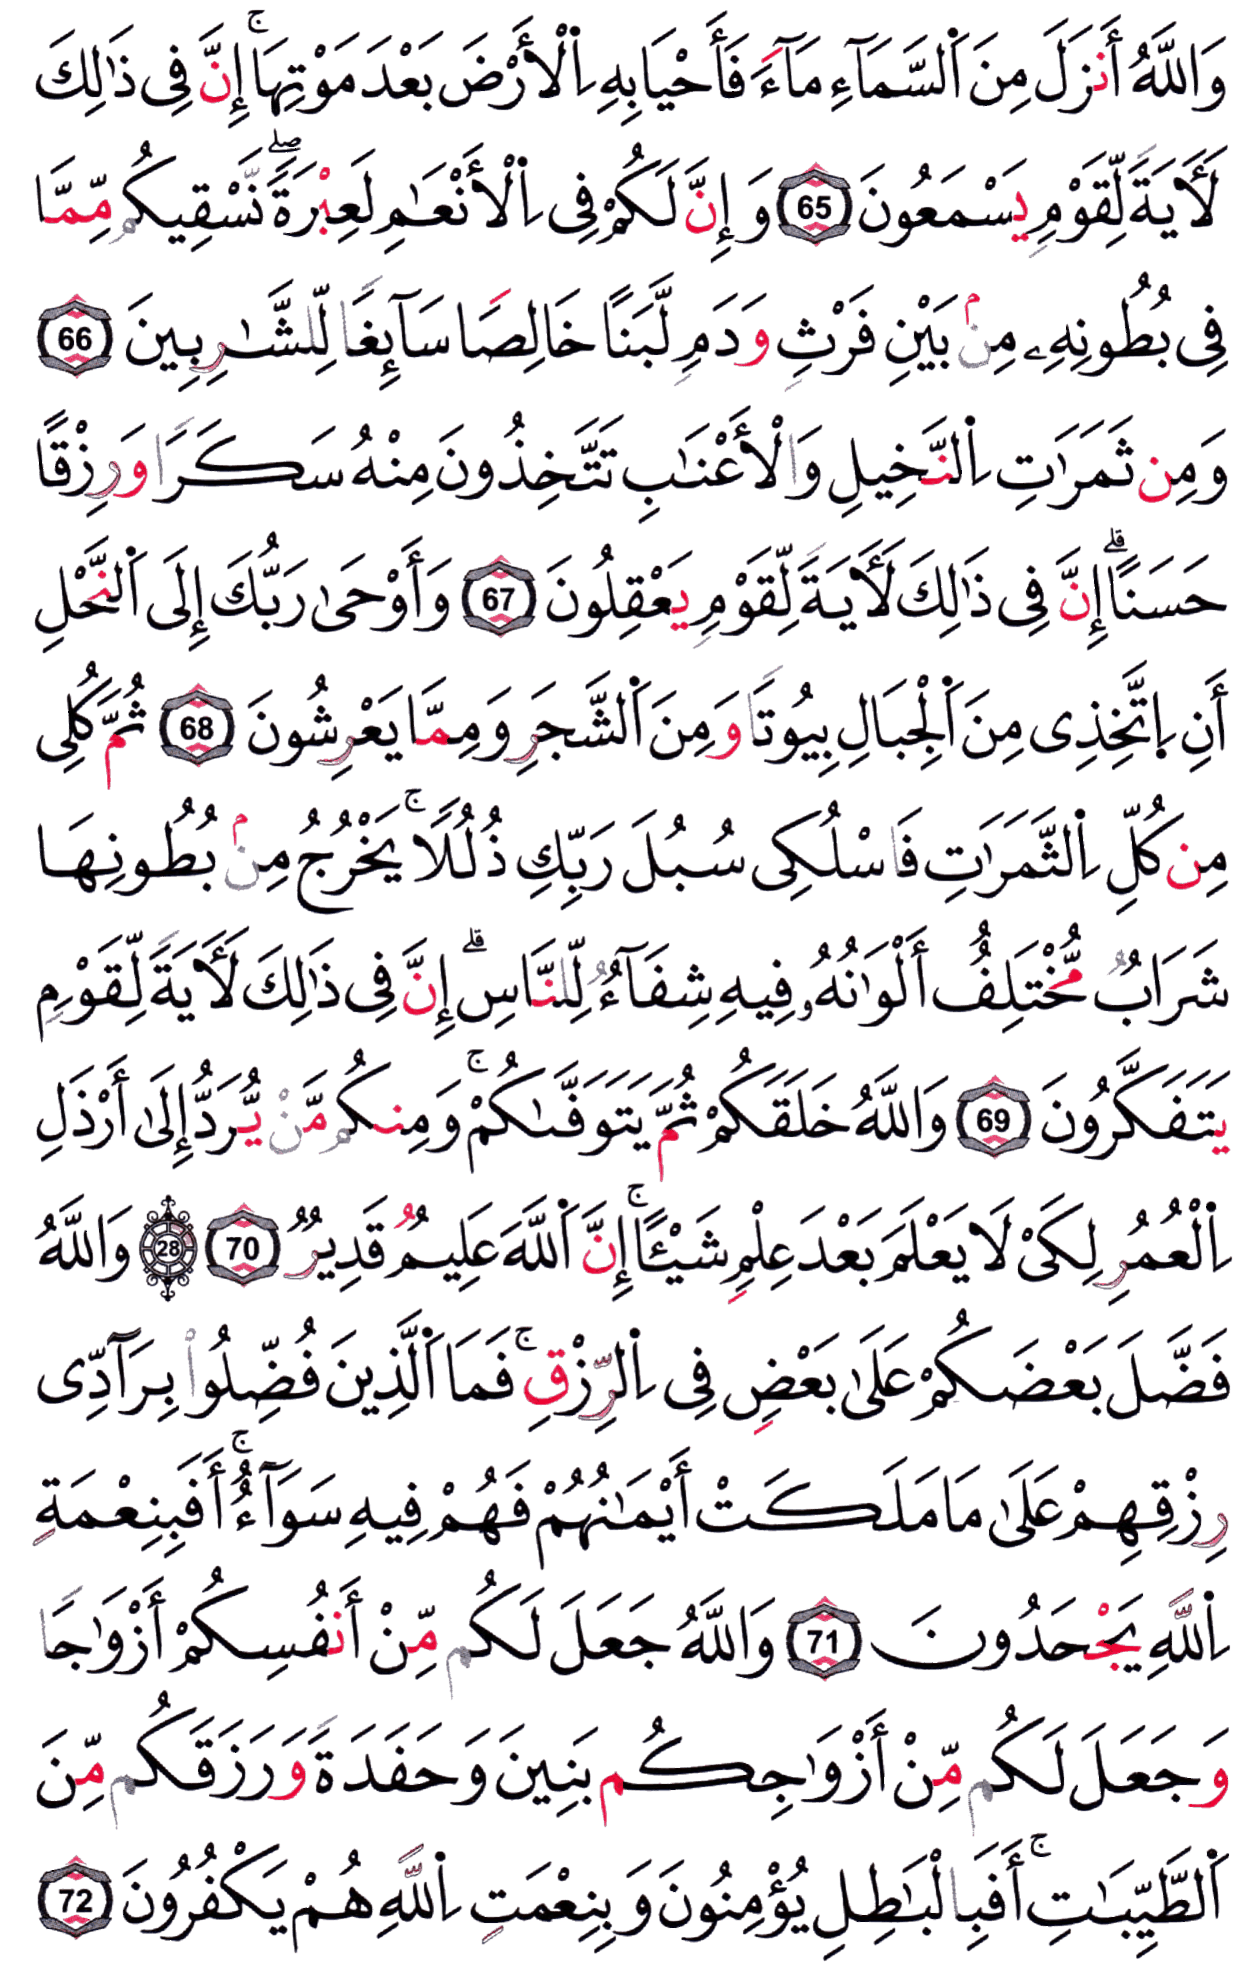 وَاللَّهُ أَنزَلَ مِنَ اَ۬لسَّمَآءِ مَآءً فَأَحْيَا بِهِ اِ۬لْأَرْضَ بَعْدَ مَوْتِهَاۚ إِنَّ فِى ذَٰلِكَ
لَأَيَةً لِّقَوْمٍ يَسْمَعُونَ 65 وَإِنَّ لَكُمْ فِى اِ۬لْأَنْعَٰمِ لَعِبْرَةًۖ نَّسْقِيكُم مِّمَّا
فِى بُطُونِهِۦ مِنۢ بَيْنِ فَرْثٍ وَدَمٍ لَّبَنًا خَالِصًا سَآئِغًا لِّلشَّٰرِبِينَ 66
وَمِن ثَمَرَٰتِ اِ۬لنَّخِيلِ وَالْأَعْنَٰبِ تَتَّخِذُونَ مِنْهُ سَكَرًا وَرِزْقًا
حَسَنًاۗ إِنَّ فِى ذَٰلِكَ لَأَيَةً لِّقَوْمٍ يَعْقِلُونَ 67 وَأَوْحَىٰ رَبُّكَ إِلَى اَ۬لنَّحْلِ
أَنِ اِ۪تَّخِذِى مِنَ اَ۬لْجِبَالِ بِيُوتًا وَمِنَ اَ۬لشَّجَرِ وَمِمَّا يَعْرِشُونَ 68 ثُمَّ كُلِى
مِن كُلِّ اِ۬لثَّمَرَٰتِ فَاسْلُكِى سُبُلَ رَبِّكِ ذُلُلًاۚ يَخْرُجُ مِنۢ بُطُونِهَا
شَرَابٌ مُّخْتَلِفٌ أَلْوَٰنُهُۥ فِيهِ شِفَآءٌ لِّلنَّاسِۗ إِنَّ فِى ذَٰلِكَ لَأَيَةً لِّقَوْمٍ
يَتَفَكَّرُونَ 69 وَاللَّهُ خَلَقَكُمْ ثُمَّ يَتَوَفَّىٰكُمْۚ وَمِنكُم مَّنْ يُّرَدُّ إِلَىٰ أَرْذَلِ
اِ۬لْعُمُرِ لِكَىْ لَا يَعْلَمَ بَعْدَ عِلْمٍ شَيْـًٔاۚ إِنَّ اَ۬للَّهَ عَلِيمٌ قَدِيرٌ 70 28 وَاللَّهُ
فَضَّلَ بَعْضَكُمْ عَلَىٰ بَعْضٍ فِى اِ۬لرِّزْقِۚ فَمَا اَ۬لَّذِينَ فُضِّلُوا۟ بِرَآدِّى
رِزْقِهِمْ عَلَىٰ مَا مَلَكَتْ أَيْمَٰنُهُمْ فَهُمْ فِيهِ سَوَآءٌۚ أَفَبِنِعْمَةِ
اِ۬للَّهِ يَجْحَدُونَ 71 وَاللَّهُ جَعَلَ لَكُم مِّنْ أَنفُسِكُمْ أَزْوَٰجًا
وَجَعَلَ لَكُم مِّنْ أَزْوَٰجِكُم بَنِينَ وَحَفَدَةً وَرَزَقَكُم مِّنَ
اَ۬لطَّيِّبَٰتِۚ أَفَبِالْبَٰطِلِ يُؤْمِنُونَ وَبِنِعْمَتِ اِ۬للَّهِ هُمْ يَكْفُرُونَ 72